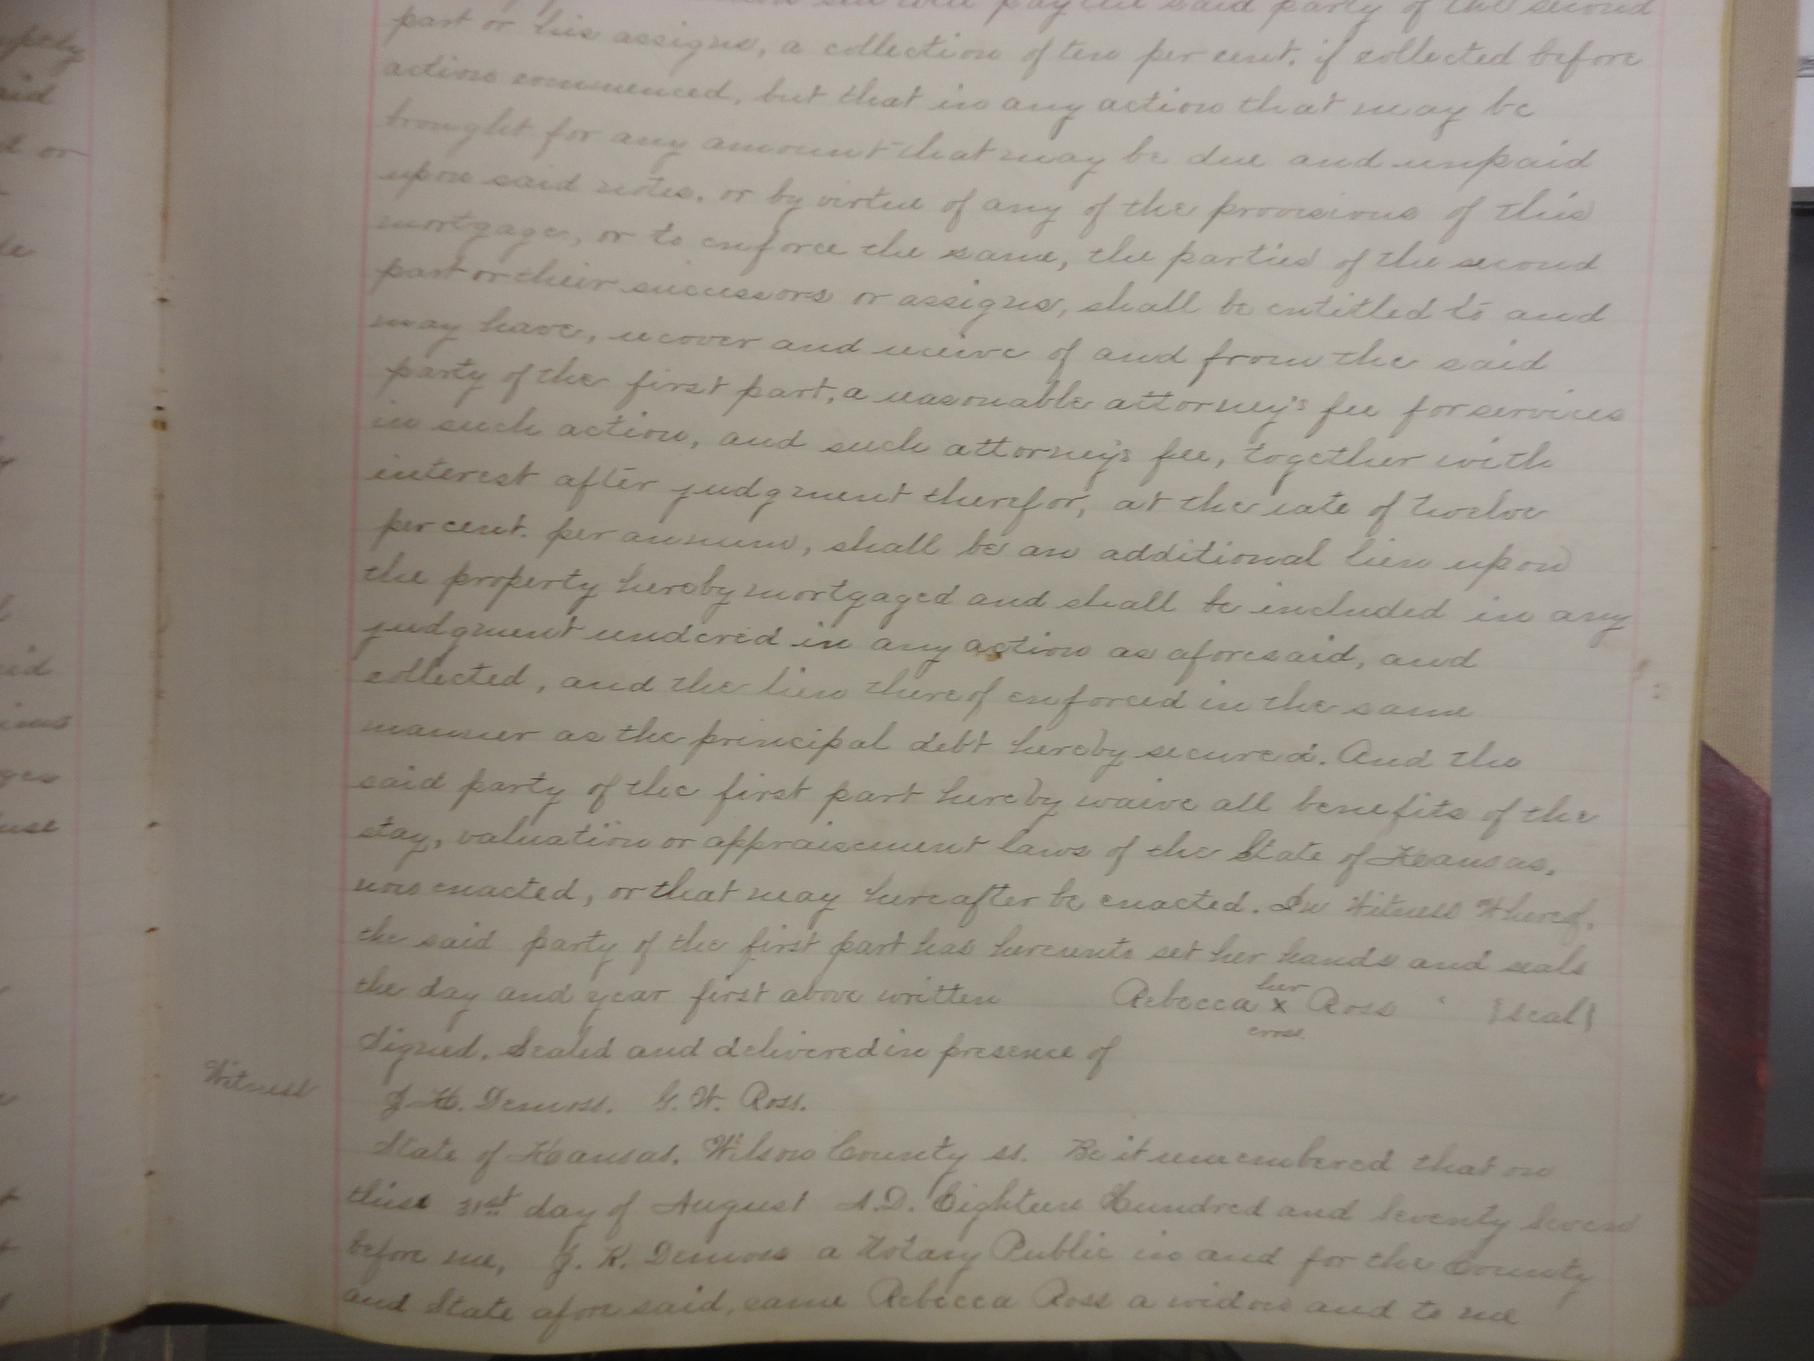 will pay the said party of the second
part or his assigns, a collection of ten per cent. if collected before
action commenced, but that in any action that may be
brought for any amount that may be due and unpaid
upon said notes, or by virtue of any of the provisions of this
mortgage, or to enforce the same, the parties of the second
part or their successors or assigns, shall be entitled to and
may have, recover and receive of and from the said
party of the first part, a reasonable attorney's fee for services
in such action, and such attorney's fee, together with
interest after judgment therefor, at the rate of twelve
per cent. per annum, shall be an additional lien upon
the property hereby mortgaged and shall be included in any
judgment rendered in any action as aforesaid, and
collected, and the lien thereof enforced in the same
manner as the principal debt hereby secured. And the
said party of the first part hereby waive all benefits of the
stay, valuation or appraisement laws of the State of Kansas,
now enacted, or that may hereafter be enacted. In Witness Whereof,
the said party of the first part has hereunto set her hands and seals
the day and year first above written Rebecca her x cross. Ross {seal}
Signed, Sealed and delivered in presence of
Witness
J. K. Demoss. G. W. Ross.
State of Kansas, Wilson County ss. Be it remembered that on
this 31st day of August A.D. Eighteen Hundred and Seventy Seven
before me, J. K. Demoss a Notary Public in and for the County
and State afore said, came Rebecca Ross a widow and to me